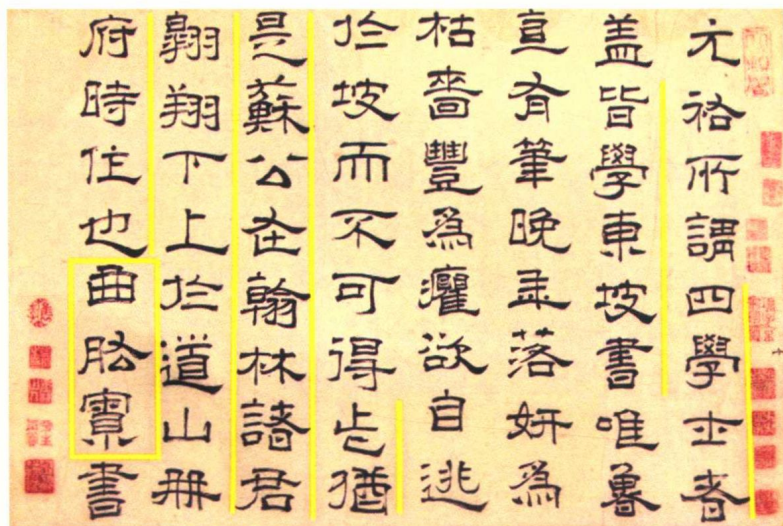 元祐所謂四學士者
盖皆學東坡書唯魯
直有筆晚年落妍為
枯嗇豐為癯欲自逃
於坡而不可得也猶
是蘇公在翰林諸君
翱翔下上於道山冊
府時住也曲肱書